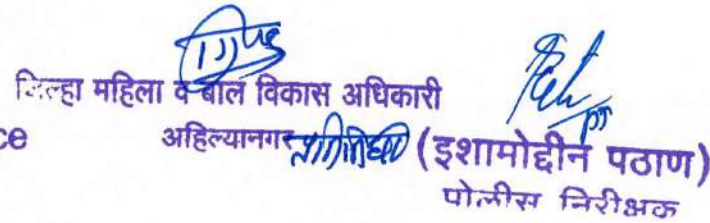 जिल्हा महिला व बाल विकास अधिकारी
ce अहिल्यानगर (इशामोद्दीन पठाण)
पोलीस निरीक्षक